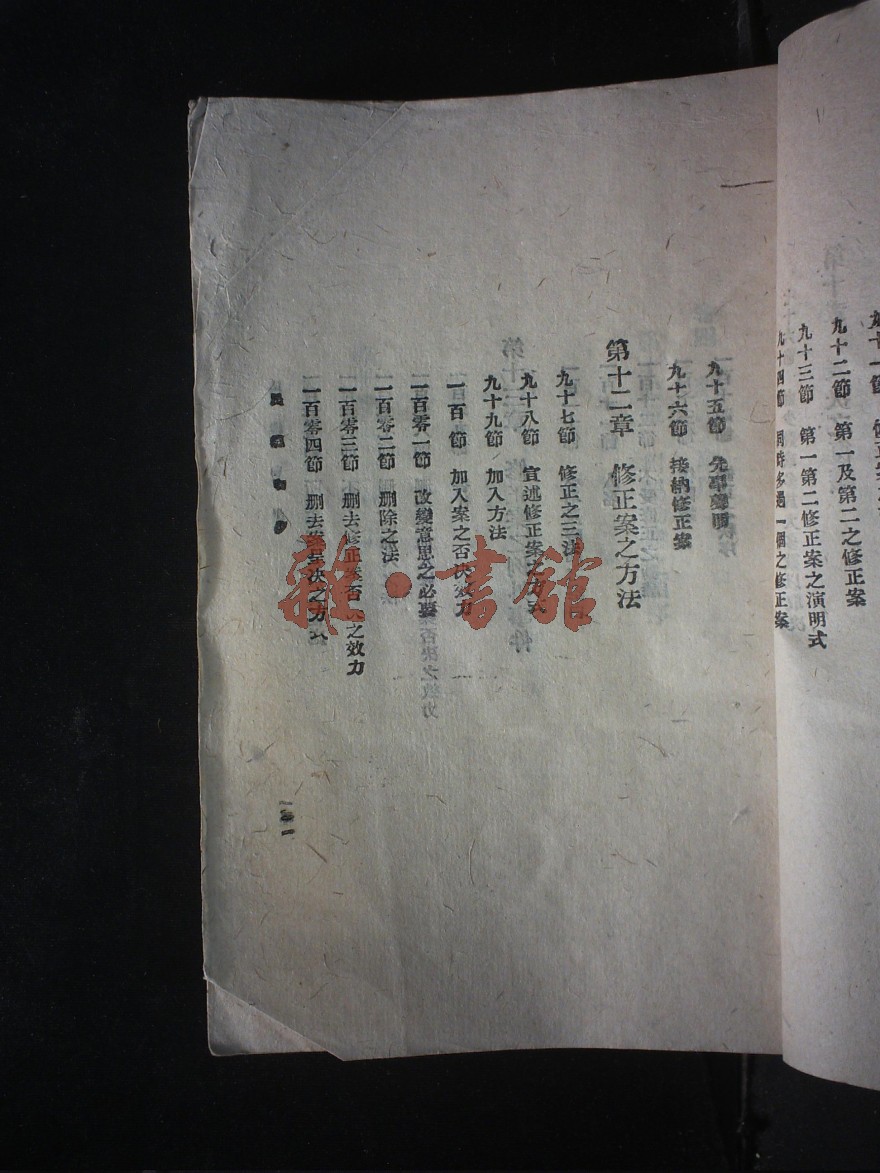 九十二節　第一及第二之修正案
九十三節　第一第二修正案之演明式
九十四節　同時多過一個之修正案
九十五節　先事聲明
九十六節　接納修正案
第十二章　修正案之方法
九十七節　修正之三法
九十八節　宣述修正案之方式
九十九節　加入方法
一百節　加入案之否決效力
一百零一節　改變意思之必要
一百零二節　刪除之法
一百零三節　刪去修正案否決之效力
一百零四節　刪去案呈決之方式
民權初步
雜·書館